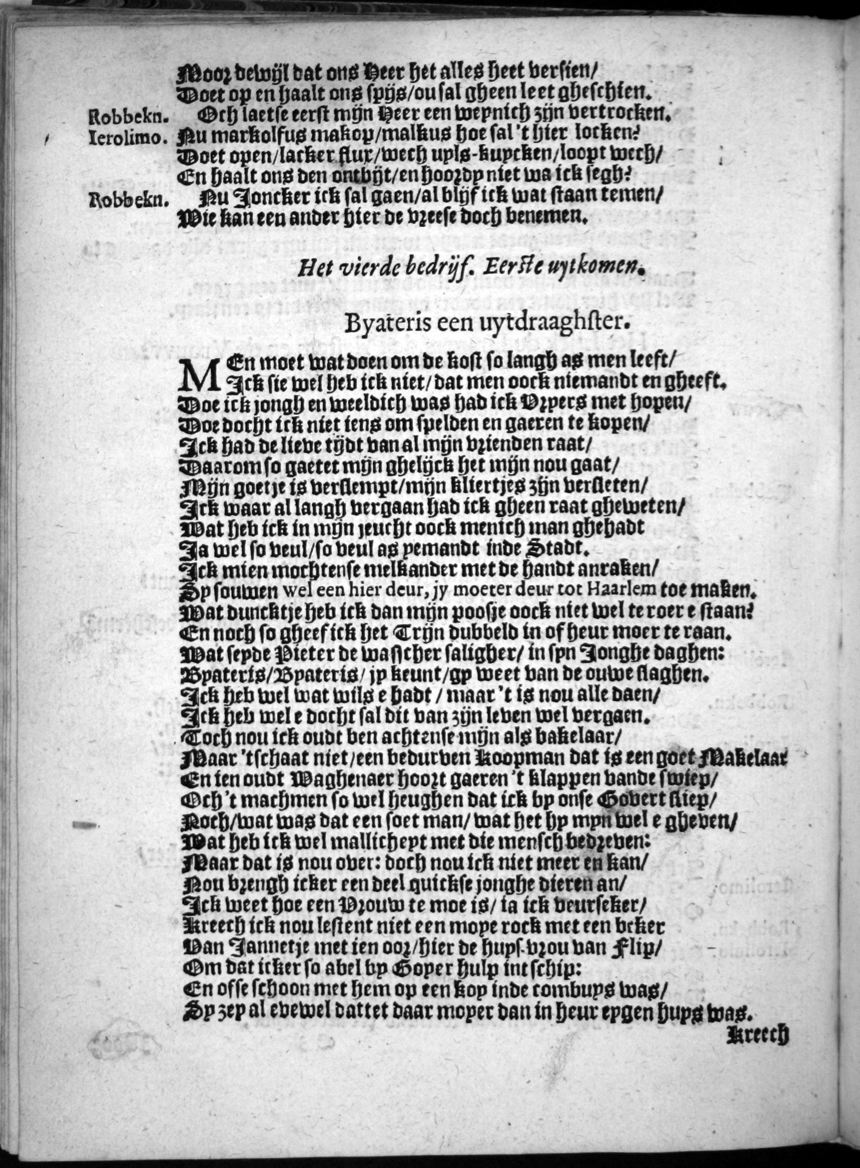 Moor dewijl dat ons Heer het alles heet versien/
Doet op en haalt ons spijs/ou sal gheen leet gheschien.
Robbekn. Och laetse eerst mijn Heer een weynich zijn vertrocken.
Ierolimo. Nu markolfus makop/malkus hoe sal 't hier locken?
Doet open/lacker flux/wech uyls-kuycken/loopt wech/
En haalt ons den ontbijt/en hoordy niet wa ick segh?
Robbekn. Nu Joncker ick sal gaen/al blijf ick wat staan temen/
Wie kan een ander hier de vreese doch benemen.
Het vierde bedrijf. Eerste uytkomen.
Byateris een uytdraaghster.
MEn moet wat doen om de kost so langh as men leeft/
Ick sie wel heb ick niet/dat men oock niemandt en gheeft.
Doe ick jongh en weeldich was had ick Vryers met hopen/
Doe docht ick niet iens om spelden en gaeren te kopen/
Ick had de lieve tijdt van al mijn vrienden raat/
Daarom so gaetet mijn ghelijck het mijn nou gaat/
Mijn goetje is verslempt/mijn kliertjes zijn versleten/
Ick waar al langh vergaan had ick gheen raat gheweten/
Wat heb ick in mijn jeucht oock menich man ghehadt
Ja wel so veul/so veul as yemandt inde Stadt.
Ick mien mochtense melkander met de handt anraken/
Sy souwen wel een hier deur, jy moeter deur tot Haarlem toe maken.
Wat duncktje heb ick dan mijn poosje oock niet wel te roer e staan?
En noch so gheef ick het Trijn dubbeld in of heur moer te raan.
Wat seyde Pieter de wasscher saligher/ in syn Jonghe daghen:
Byateris/Byateris/ jy keunt/gy weet van de ouwe slaghen.
Ick heb wel wat wils e hadt/ maar 't is nou alle daen/
Ick heb wel e docht sal dit van zijn leven wel vergaen.
Toch nou ick oudt ben achtense mijn als bakelaar/
Maar 'tschaat niet/een bedurven Koopman dat is een goet Makelaar
En ien oudt Waghenaer hoort gaeren 't klappen vande swiep/
Och 't machmen so wel heughen dat ick by onse Govert sliep/
Noch/wat was dat een soet man/wat het hy myn wel e gheven/
Wat heb ick wel mallicheyt met die mensch bedreven:
Maar dat is nou over: doch nou ick niet meer en kan/
Nou brengh icker een deel quickse jonghe dieren an/
Ick weet hoe een Vrouw te moe is/ ia ick veurseker/
Kreech ick nou lestent niet een moye rock met een beker
Van Jannetje met ien oor/hier de huys-vrou van Flip/
Om dat icker so abel by Goyer hulp int schip:
En ofse schoon met hem op een koy inde combuys was/
Sy zey al evewel dattet daar moyer dan in heur eygen huys was.
Kreech